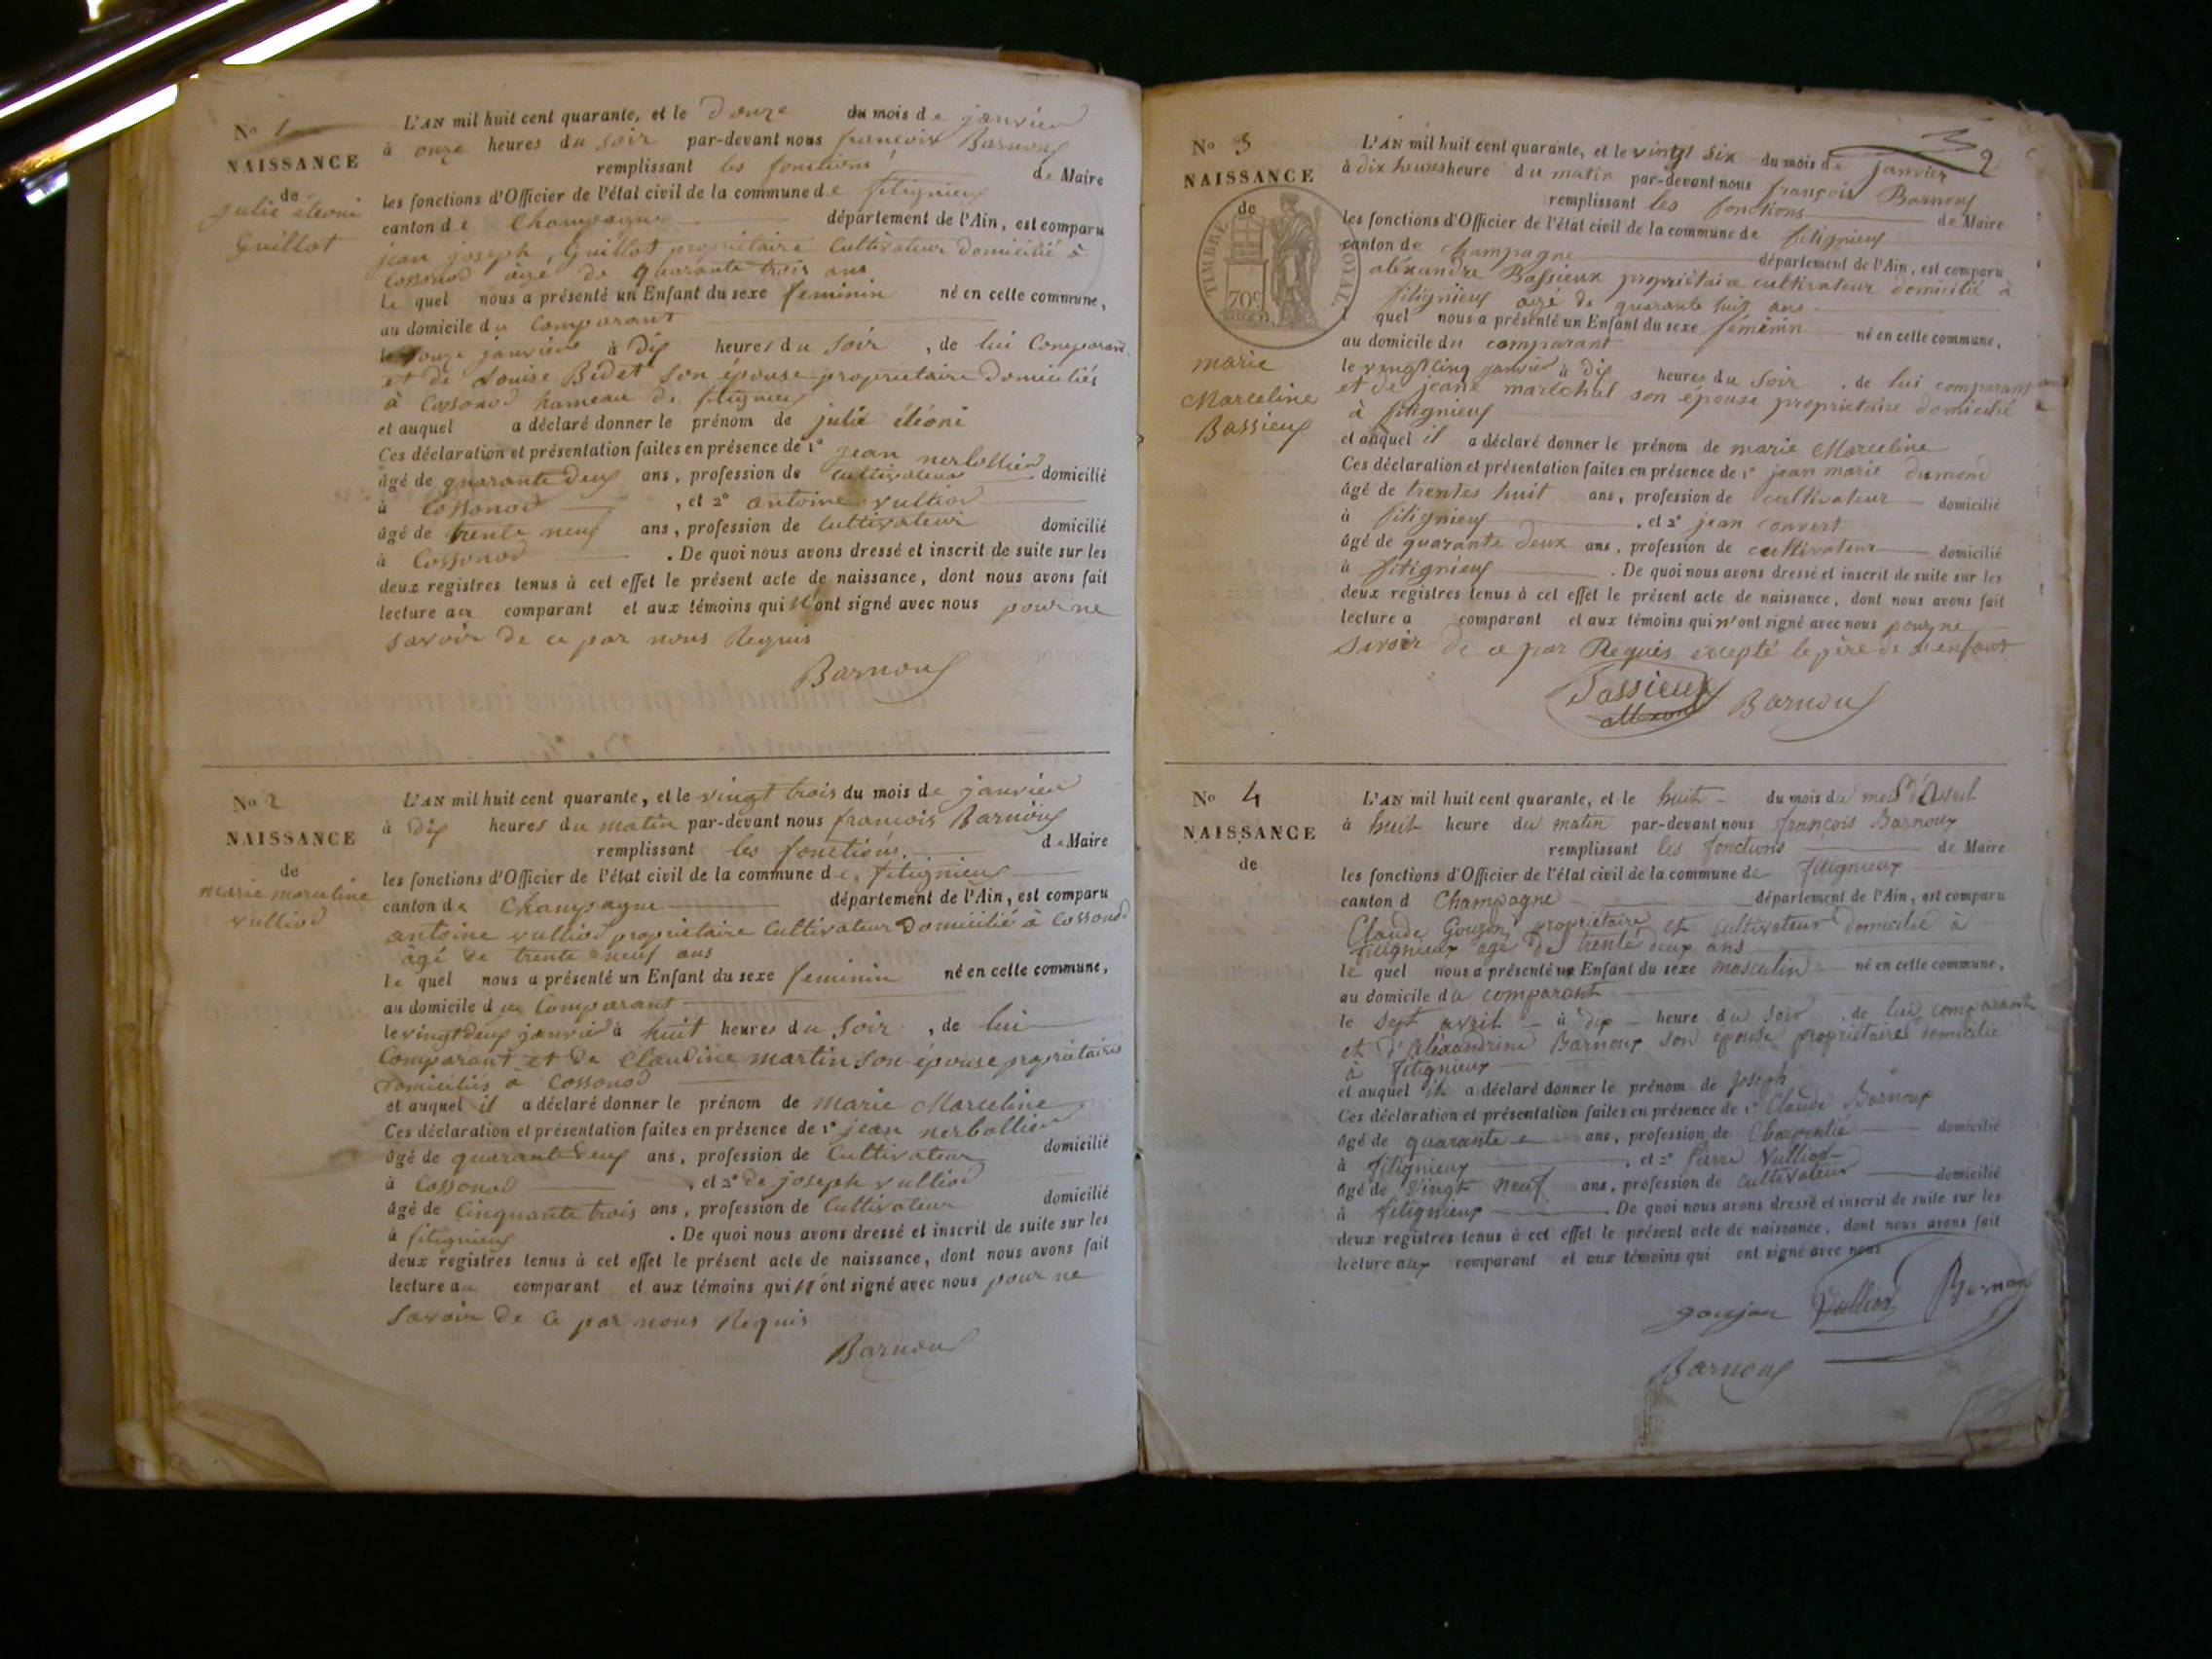 No 1
NAISSANCE
de
julie éléoni
Guillot
L'AN mil huit cent quarante, et le douze du mois de janvier
à onze heures du soir par-devant nous francois Barnoux
remplissant les fonctions de Maire
les fonctions d'Officier de l'état civil de la commune de fitignieux
canton de Champagne département de l'Ain, est comparu
jean joseph, Guillot propriétaire Cultivateur domicilié à
Cossonod agé de quarante trois ans
le quel nous a présenté un Enfant du sexe feminin né en cette commune,
au domicile du Comparant
le onze janvier à dix heures du soir, de lui Comparant
et de Louise Bidet son épouse propriétaire domiciliés
à Cossonod hameau de fitignieux
et auquel a déclaré donner le prénom de julie éléoni
Ces déclaration et présentation faites en présence de 1° jean nerbollier
âgé de quarante deux ans, profession de cultivateur domicilié
à Cossonod, et 2° antoine vulliod
âgé de trente neuf ans, profession de Cultivateur domicilié
à Cossonod. De quoi nous avons dressé et inscrit de suite sur les
deux registres tenus à cet effet le présent acte de naissance, dont nous avons fait
lecture au comparant et aux témoins qui n'ont signé avec nous pour ne
savoir de ce par nous Requis
Barnoux
No 2
NAISSANCE
de
marie marceline
vulliod
L'AN mil huit cent quarante, et le vingt trois du mois de janvier
à dix heures du matin par-devant nous francois Barnoux
remplissant les fonctions. de Maire
les fonctions d'Officier de l'état civil de la commune de fitignieux
canton de Champagne département de l'Ain, est comparu
antoine vulliod propriétaire Cultivateur Domicilié à Cossonod
âgé de trente neuf ans
le quel nous a présenté un Enfant du sexe feminin né en cette commune,
au domicile du Comparant
le vingt deux janvier à huit heures du soir, de lui
Comparant et de Claudine martin son épouse propriétaires
domiciliés à Cossonod
et auquel il a déclaré donner le prénom de marie Marceline
Ces déclaration et présentation faites en présence de 1° jean nerbollier
âgé de quarante deux ans, profession de Cultivateur domicilié
à Cossonod, et 2° de joseph vulliod
âgé de Cinquante trois ans, profession de Cultivateur domicilié
à fitignieux. De quoi nous avons dressé et inscrit de suite sur les
deux registres tenus à cet effet le présent acte de naissance, dont nous avons fait
lecture au comparant et aux témoins qui n'ont signé avec nous pour ne
Savoir de ce par nous Requis
Barnoux
2
No 3
NAISSANCE
de
TIMBRE ROYAL.
70c
marie
Marceline
Bassieux
L'AN mil huit cent quarante, et le vingt six du mois de janvier
à dix heures heure du matin par-devant nous françois Barnoux
remplissant les fonctions de Maire
les fonctions d'Officier de l'état civil de la commune de fitignieux
canton de Champagne département de l'Ain, est comparu
aléxandre Bassieux propriétaire cultivateur domicilié à
fitignieux agé de quarante huit ans
quel nous a présenté un Enfant du sexe féminin né en cette commune,
au domicile du comparant
le vingt cinq janvier à dix heures du soir, de lui comparant
et de jeane maréchal son épouse propriétaire domicilié
à fitignieux
et auquel il a déclaré donner le prénom de marie Marceline
Ces déclaration et présentation faites en présence de 1° jean marie dumond
âgé de trentes huit ans, profession de cultivateur domicilié
à fitignieux, et 2° jean convert
âgé de quarante deux ans, profession de cultivateur domicilié
à fitignieux. De quoi nous avons dressé et inscrit de suite sur les
deux registres tenus à cet effet le présent acte de naissance, dont nous avons fait
lecture a comparant et aux témoins qui n'ont signé avec nous pour ne
savoir de ce par Requis excepté le père de l'enfant
Bassieux Barnoux
No 4
NAISSANCE
de
L'AN mil huit cent quarante, et le huit du mois du mois d'Avril
à huit heure du matin par-devant nous françois Barnoux
remplissant les fonctions de Maire
les fonctions d'Officier de l'état civil de la commune de fitignieux
canton d Champagne département de l'Ain, est comparu
Claude Goujon propriétaire et cultivateur domicilié à
fitignieux agé de trente deux ans
le quel nous a présenté un Enfant du sexe masculin né en cette commune,
au domicile du comparant
le sept avril à dix heure du soir, de lui comparant
et d'Aléxandrine Barnoux son épouse propriétaires domicilié
à fitignieux
et auquel il a déclaré donner le prénom de joseph
Ces déclaration et présentation faites en présence de 1° Claude Barnoux
âgé de quarante ans, profession de Charpentié domicilié
à fitignieux, et 2° Pierre Vulliod
âgé de Vingt neuf ans, profession de cultivateur domicilié
à fitignieux. De quoi nous avons dressé et inscrit de suite sur les
deux registres tenus à cet effet le présent acte de naissance, dont nous avons fait
lecture aux comparant et aux témoins qui ont signé avec nous
goujon Vulliod Barnoux
Barnoux